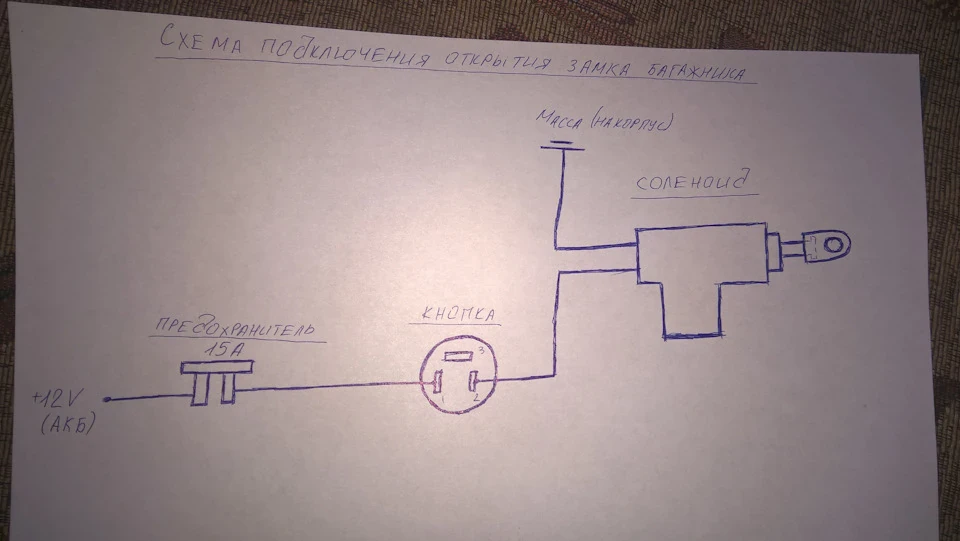 Схема подключения открытия замка багажника
Масса (на корпус)
Соленоид
Кнопка
Предохранитель
15А
3
1
2
+12V
(АКБ)